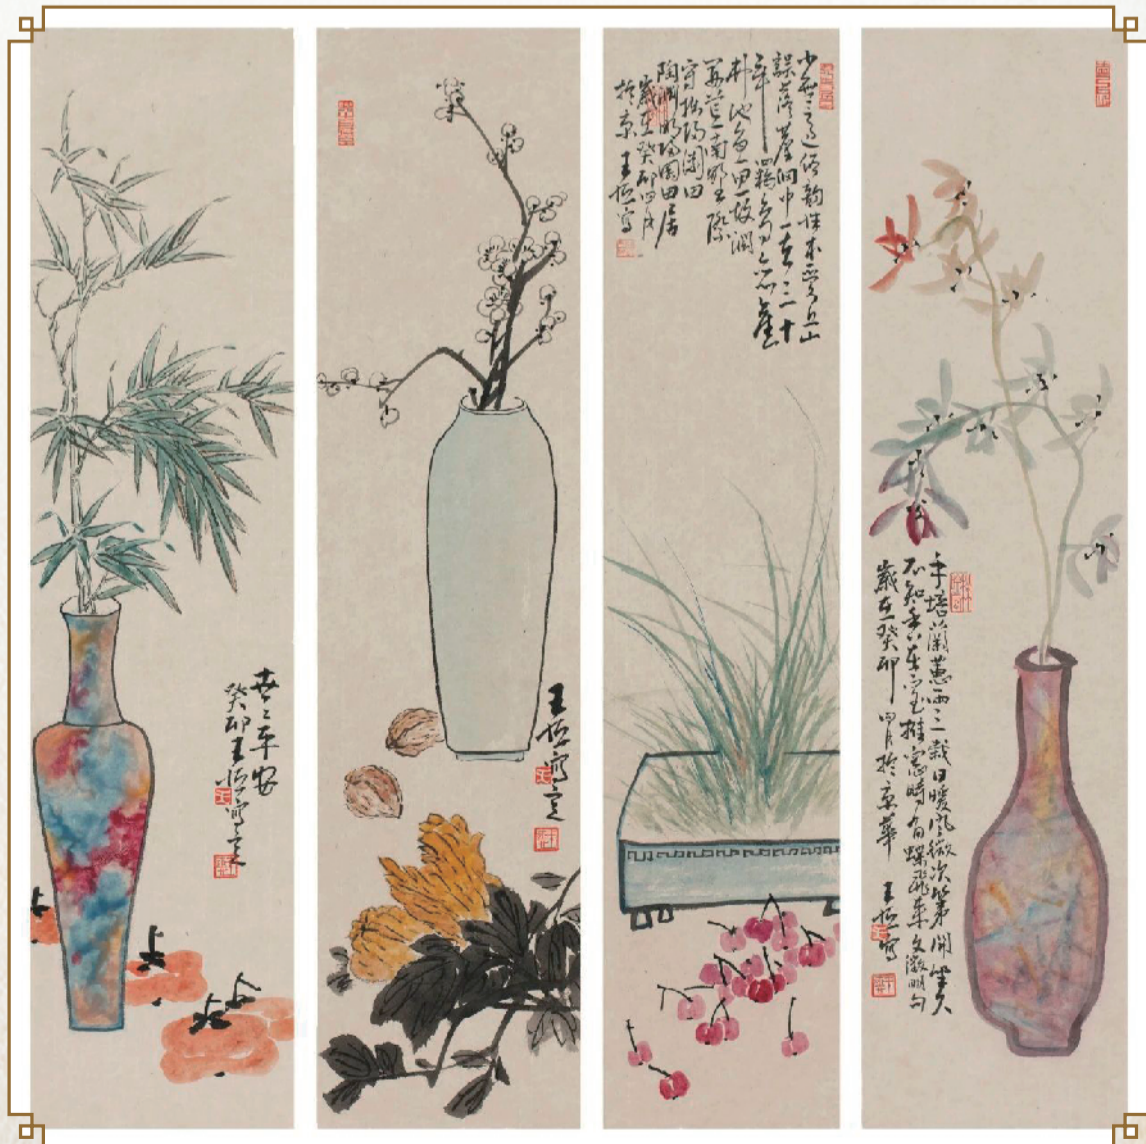 世〻平安
癸卯王恒寫
王恒寫
少無適俗韻性本愛丘山
誤落塵網中一去三十
年羈鳥戀舊
林池魚思故淵
開荒南野際
守拙歸園田
陶淵明歸園田居
歲在癸卯四月
於京 王恒寫
手培蘭蕙兩三栽日暖風微次第開坐久
不知香在室推窗時有蝶飛來文徵明句
歲在癸卯四月於京華 王恒寫